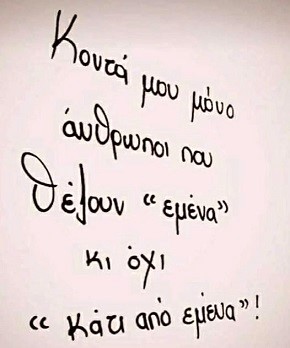 Κοντά μου μόνο
άνθρωποι που
θέλουν "εμένα"
κι όχι
"κάτι από εμένα"!